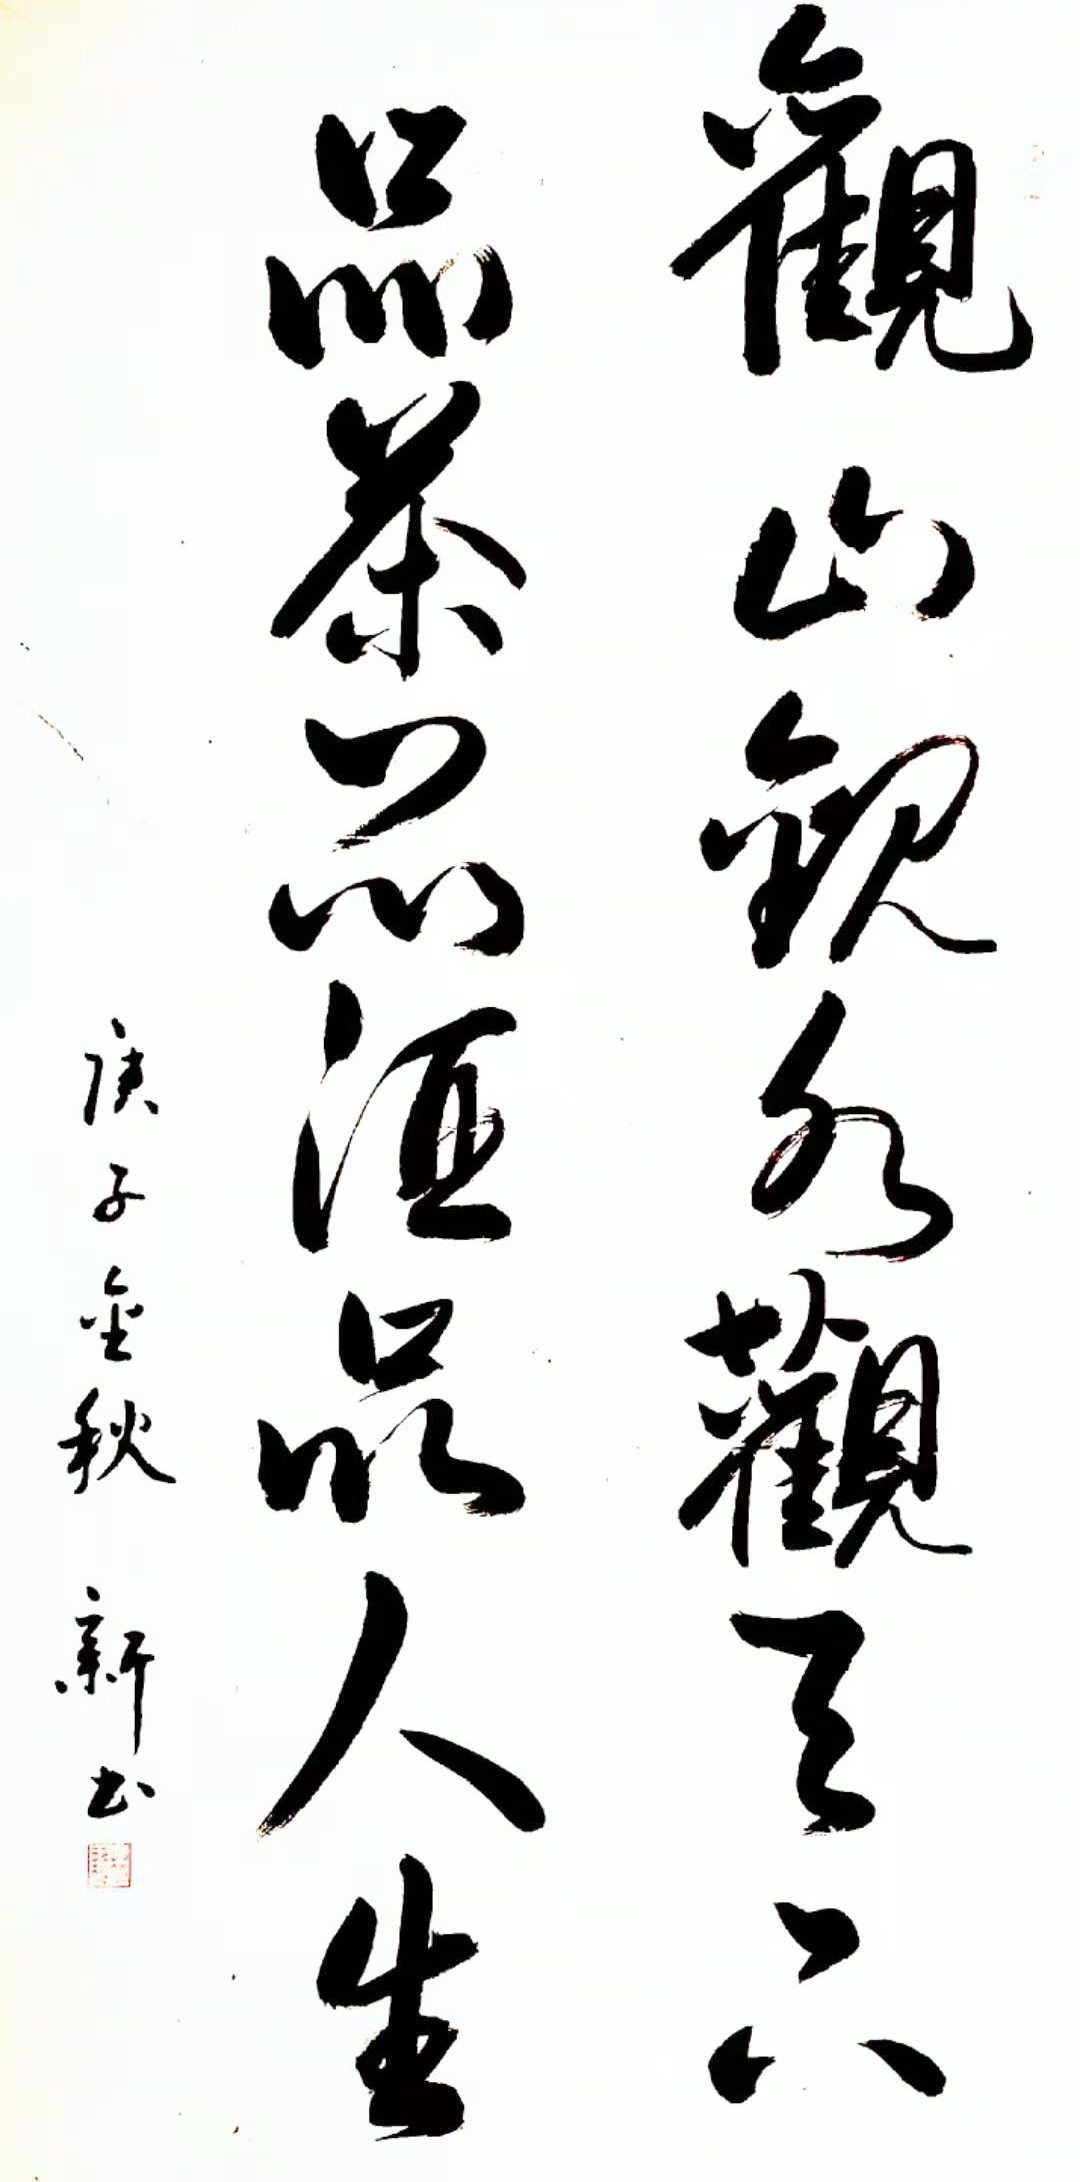 觀山觀水觀天下
品茶品酒品人生
庚子金秋 新书